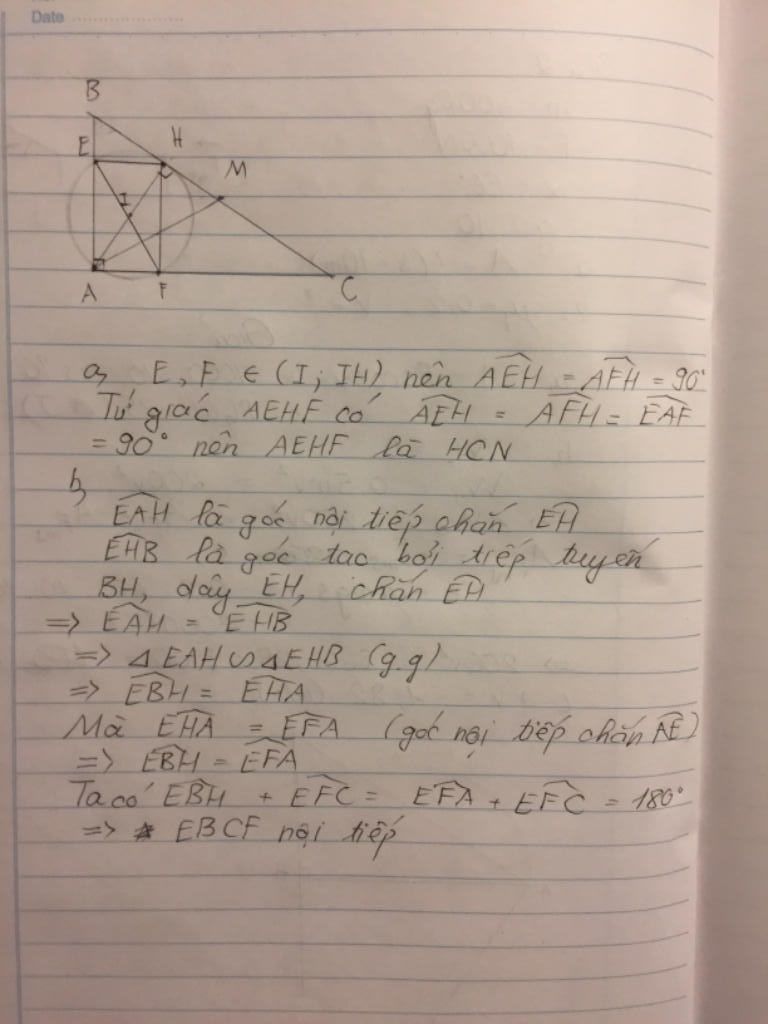 Date
B
E
H
M
I
A
F
C
a, E, F ∈ (I; IH) nên AÊH = AF̂H = 90°
Tứ giác AEHF có AÊH = AF̂H = EÂF
= 90° nên AEHF là HCN
b,
EÂH là góc nội tiếp chắn EH
EĤB là góc tạo bởi tiếp tuyến
BH, dây EH, chắn EH
=> EÂH = EĤB
=> △ EAH ∽ △ EHB (g.g)
=> EB̂H = EĤA
Mà EĤA = EF̂A (góc nội tiếp chắn AE)
=> EB̂H = EF̂A
Ta có EB̂H + EF̂C = EF̂A + EF̂C = 180°
=> EBCF nội tiếp